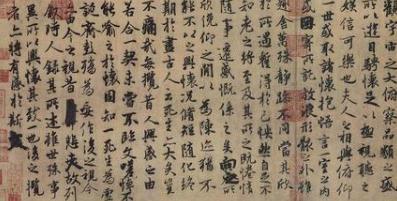 觀宇宙之大俯察品類之盛
所以遊目騁懷足以極視聽之
娛信可樂也夫人之相與俯仰
一世或取諸懷抱悟言一室之內
或因寄所託放浪形骸之外雖
趣舍萬殊靜躁不同當其欣
於所遇蹔得於己怏然自足不
知老之將至及其所之既惓情
隨事遷感慨係之矣向之所
欣俛仰之閒以為陳迹猶不
能不以之興懷況脩短隨化終
期於盡古人云死生亦大矣豈
不痛哉每攬昔人興感之由
若合一契未嘗不臨文嗟悼不
能喻之於懷固知一死生為虛
誕齊彭殤為妄作後之視今
亦由今之視昔悲夫故列
敘時人錄其所述雖世殊事
異所以興懷其致一也後之攬
者亦將有感於斯